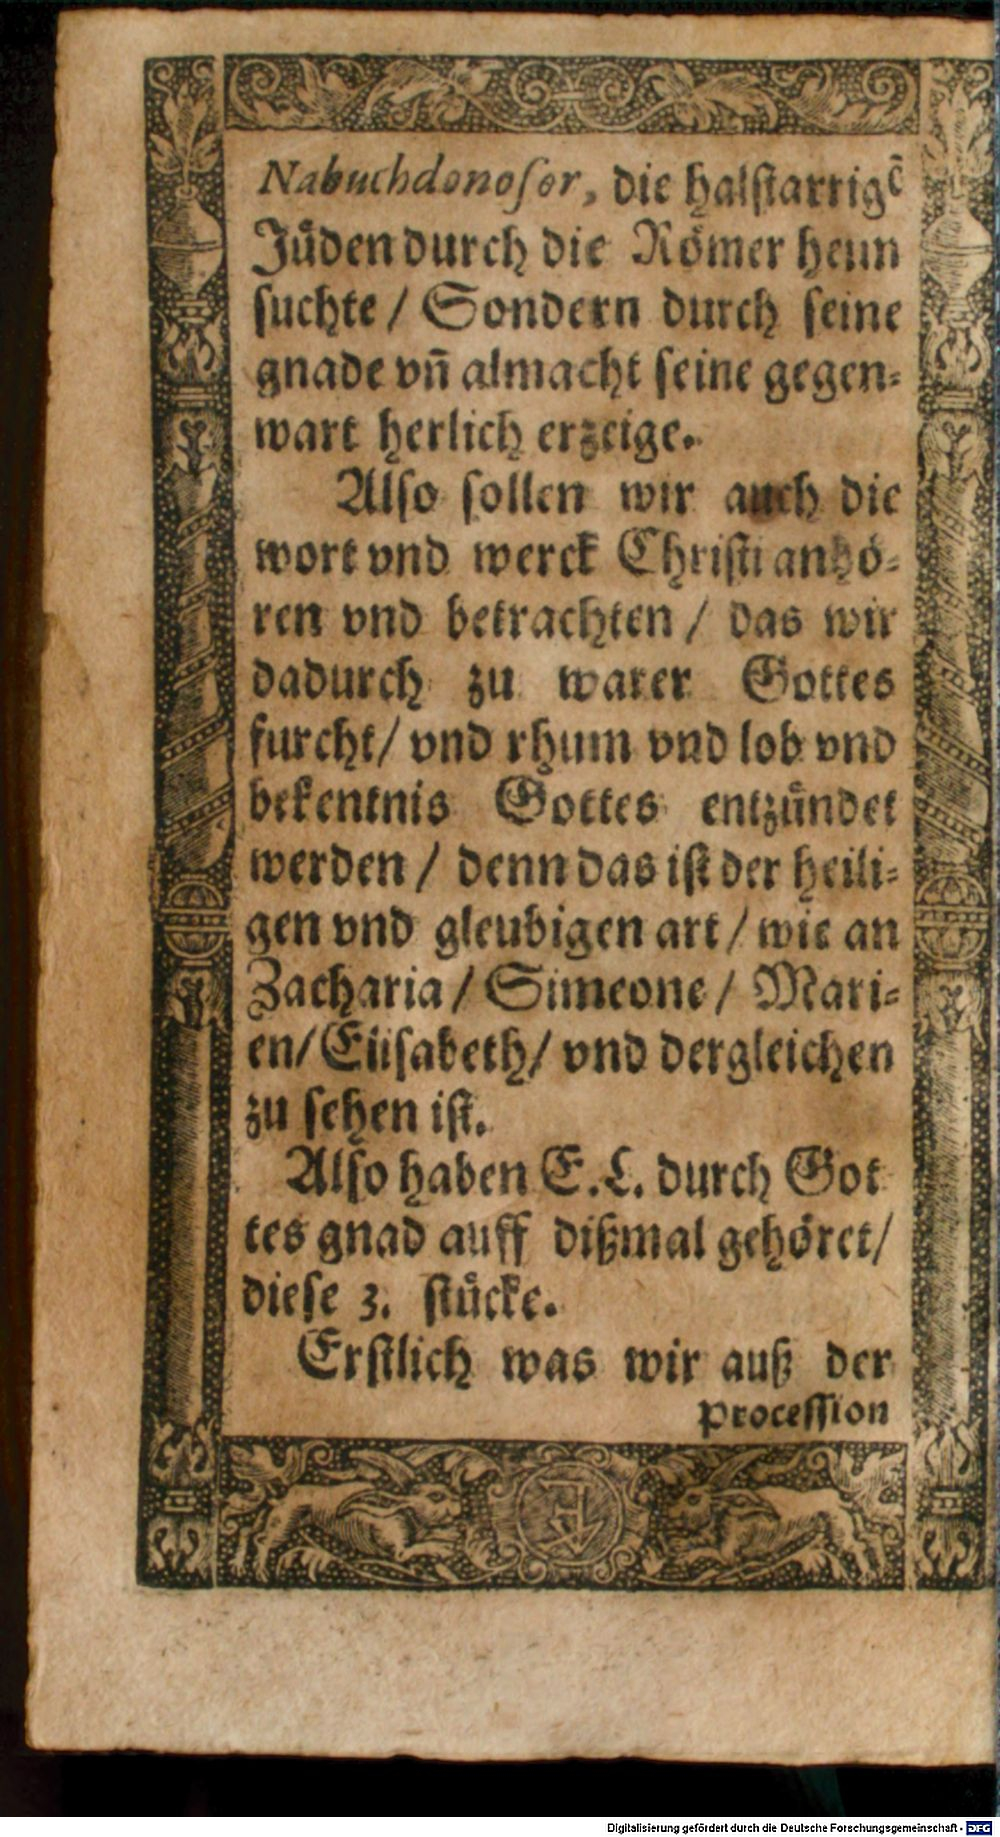 Nabuchdonosor, die halstarrigē
Jůden durch die Römer heim
suchte / Sondern durch seine
gnade vn̄ almacht seine gegen⸗
wart herlich erzeige.
Also sollen wir auch die
wort vnd werck Christi anhö⸗
ren vnd betrachten / das wir
dadurch zu warer Gottes
furcht / vnd rhum vnd lob vnd
bekentnis Gottes entzůndet
werden / denn das ist der heili⸗
gen vnd gleubigen art / wie an
Zacharia / Simeone / Mari⸗
en / Elisabeth / vnd dergleichen
zu sehen ist.
Also haben E.L. durch Got
tes gnad auff dißmal gehöret /
diese 3. stůcke.
Erstlich was wir auß der
Procession
Digitalisierung gefördert durch die Deutsche Forschungsgemeinschaft - DFG